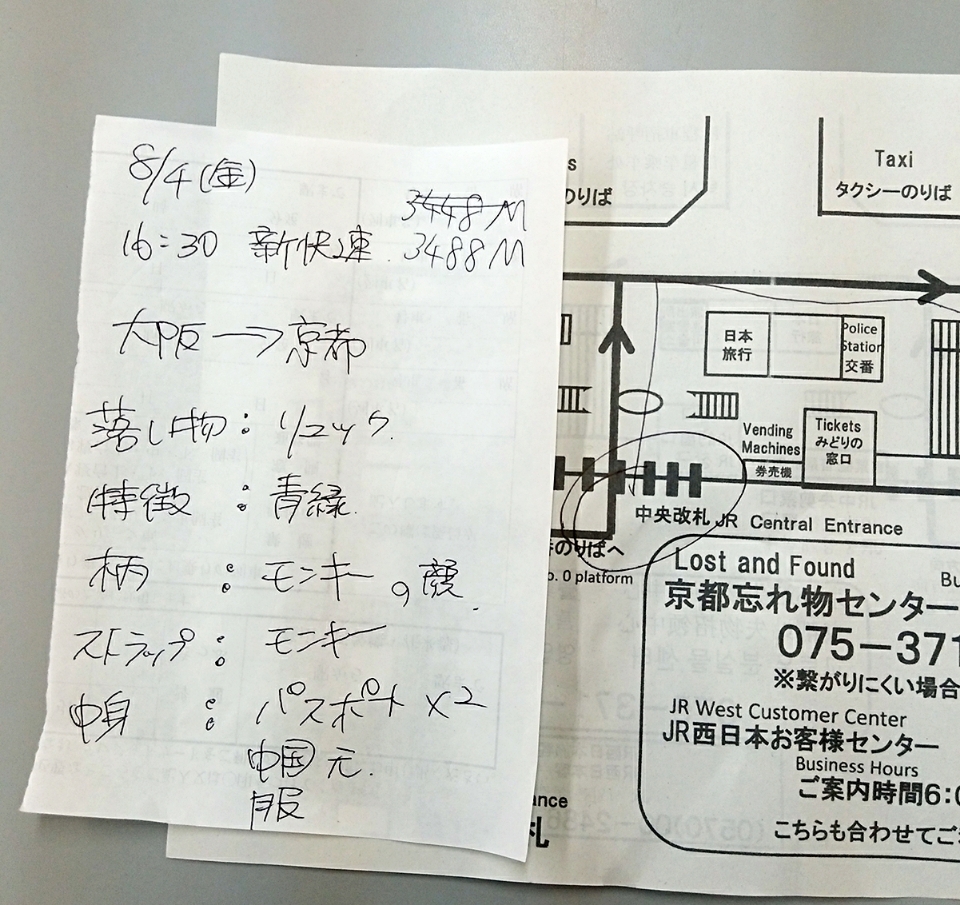 8/4(金)
3448M
16:30 新快速 3488M
大阪→京都
落し物:リュック
特徴:青緑
柄:モンキーの顔
ストラップ:モンキー
中身:パスポート×2
中国元
服
s
のりば
Taxi
タクシーのりば
日本
旅行
Police
Station
交番
Vending
Machines
券売機
Tickets
みどりの
窓口
中央改札 JR Central Entrance
のりばへ
o. 0 platform
Lost and Found
Bu
京都忘れ物センター
075-371
※繋がりにくい場合
JR West Customer Center
JR西日本お客様センター
Business Hours
ご案内時間6:0
こちらも合わせてご
ance
札